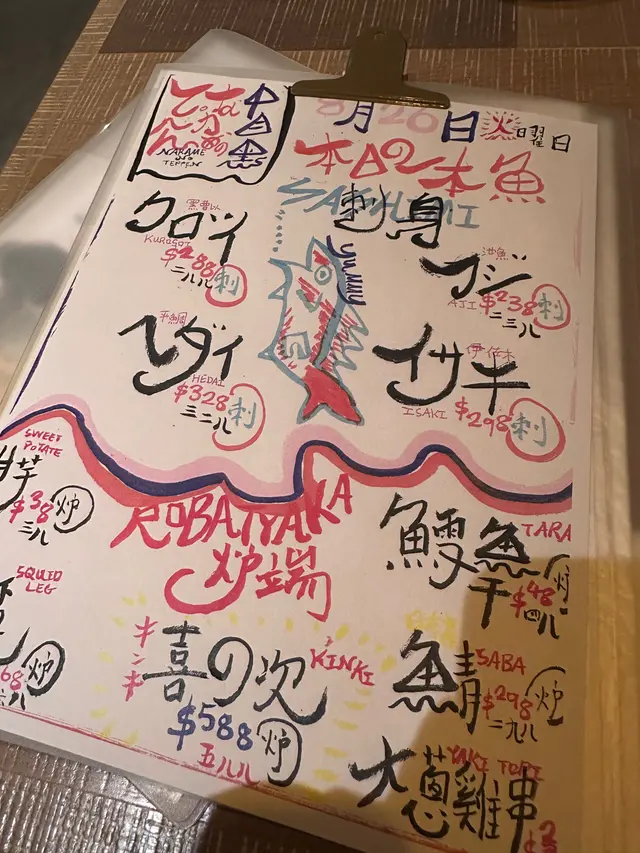 NARAME
NO
TEPPEN
8月20日 火曜日
本日の本魚
SASHIMI
刺身
yummy
クロソイ
KUROSOI
$288
二八八
刺
アジ
池魚
AJI $238
二三八
刺
ヘダイ
平鯛
HEDAI
$328
三二八
刺
イサキ
伊佐木
ISAKI $298
刺
SWEET
POTATE
芋
$38
三八
炉
ROBATAYAKA
炉端
鱈魚干
TARA
$48
四八
炉
SQUID
LEG
炉
キンキ
喜の次
KINKI
$588
五八八
炉
鯖
SABA
$298
二九八
炉
大葱雞串
YAKI TORI